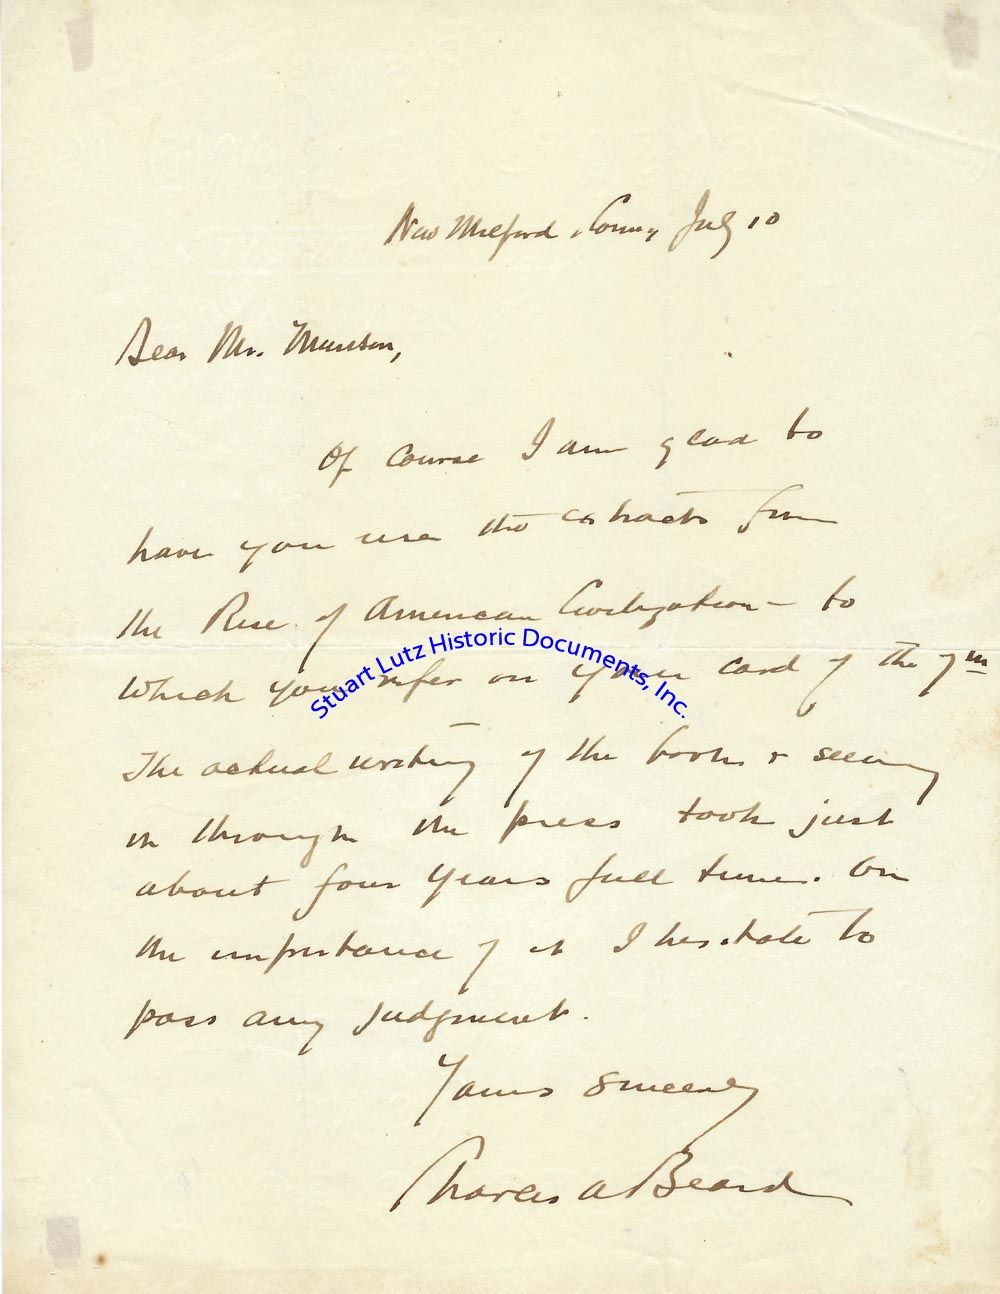 New Milford, Conn, July 10
Dear Mr. Munson,
Of course I am glad to
have you use the extracts from
the Rise of American Civilization – to
which you refer on your card of the 7th
Stuart Lutz Historic Documents, Inc.
The actual writing of the book & seeing
it through the press took just
about four years full time. On
the importance of it I hesitate to
pass any judgment.
Yours sincerely
Charles A Beard